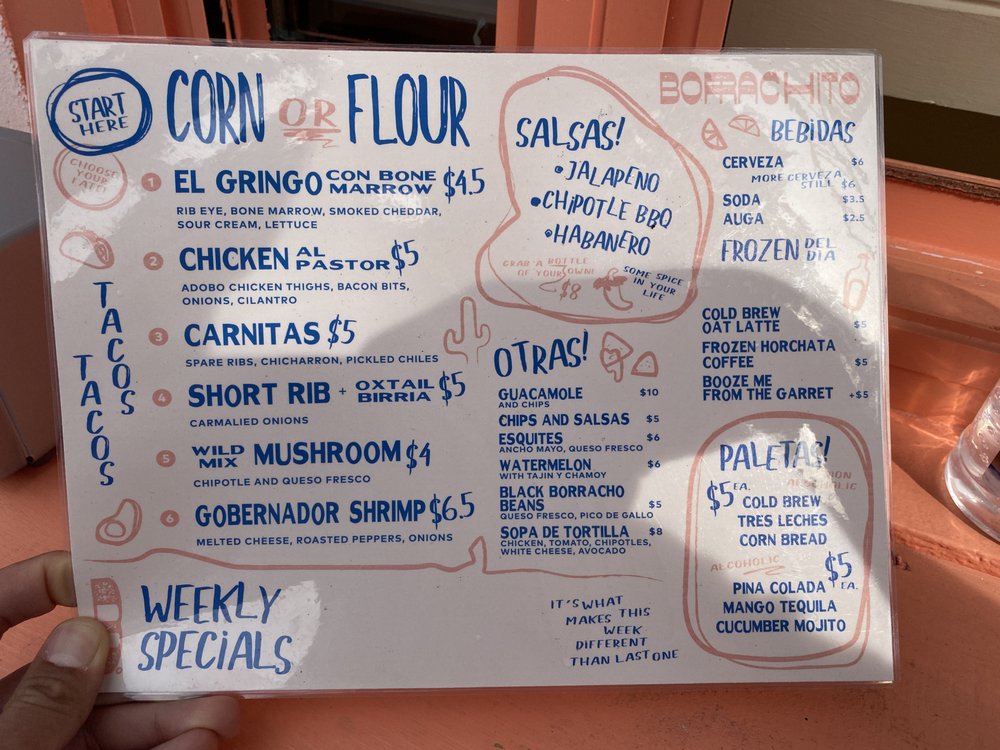 START
HERE
CORN OR FLOUR
CHOOSE
YOUR
LATE!
1 EL GRINGO CON BONE MARROW $4.5
RIB EYE, BONE MARROW, SMOKED CHEDDAR,
SOUR CREAM, LETTUCE
2 CHICKEN AL PASTOR $5
ADOBO CHICKEN THIGHS, BACON BITS,
ONIONS, CILANTRO
3 CARNITAS $5
SPARE RIBS, CHICHARRON, PICKLED CHILES
4 SHORT RIB + OXTAIL BIRRIA $5
CARMALIED ONIONS
5 WILD MIX MUSHROOM $4
CHIPOTLE AND QUESO FRESCO
6 GOBERNADOR SHRIMP $6.5
MELTED CHEESE, ROASTED PEPPERS, ONIONS
TACOS
TACOS
WEEKLY
SPECIALS
IT'S WHAT
MAKES THIS
WEEK
DIFFERENT
THAN LAST ONE
SALSAS!
•JALAPENO
•CHIPOTLE BBQ
•HABANERO
GRAB A BOTTLE
OF YOUR OWN!
$8
SOME SPICE
IN YOUR
LIFE
OTRAS!
GUACAMOLE $10
AND CHIPS
CHIPS AND SALSAS $5
ESQUITES $6
ANCHO MAYO, QUESO FRESCO
WATERMELON $6
WITH TAJIN Y CHAMOY
BLACK BORRACHO
BEANS $5
QUESO FRESCO, PICO DE GALLO
SOPA DE TORTILLA $8
CHICKEN, TOMATO, CHIPOTLES,
WHITE CHEESE, AVOCADO
BORRACHITO
BEBIDAS
CERVEZA $6
MORE CERVEZA
STILL $6
SODA $3.5
AUGA $2.5
FROZEN DEL DIA
COLD BREW
OAT LATTE $5
FROZEN HORCHATA
COFFEE $5
BOOZE ME
FROM THE GARRET +$5
PALETAS!
NON
ALCOHOLIC
$5 EA.
COLD BREW
TRES LECHES
CORN BREAD
ALCOHOLIC
$5 EA.
PINA COLADA
MANGO TEQUILA
CUCUMBER MOJITO